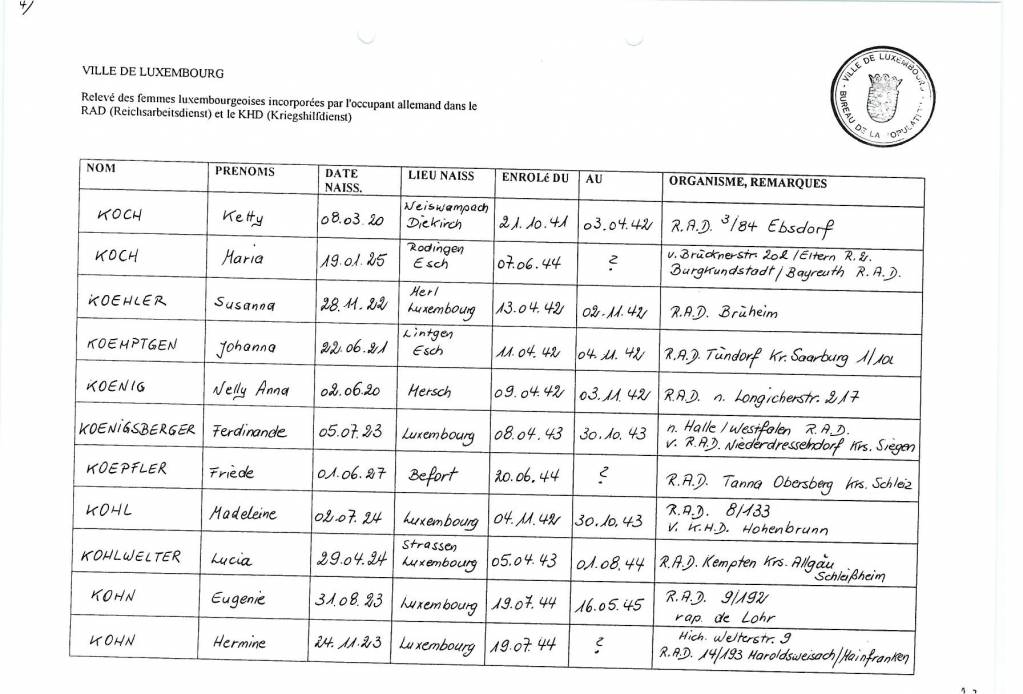 4/
VILLE DE LUXEMBOURG
BUREAU DE LA POPULATION
VILLE DE LUXEMBOURG
Relevé des femmes luxembourgeoises incorporées par l'occupant allemand dans le
RAD (Reichsarbeitsdienst) et le KHD (Kriegshilfdienst)
NOM PRENOMS DATE NAISS. LIEU NAISS ENROLé DU AU ORGANISME, REMARQUES
KOCH Ketty 08.03.20 Weiswampach Diekirch 21.10.41 03.04.42 R.A.D. 3/84 Ebsdorf
KOCH Maria 19.01.25 Rodingen Esch 07.06.44 ? v. Brücknerstr. 202/Eltern R.2.
Burgkundstadt/Bayreuth R.A.D.
KOEHLER Susanna 28.11.22 Merl Luxembourg 13.04.42 02.11.42 R.A.D. Brüheim
KOEMPTGEN Johanna 22.06.21 Lintgen Esch 11.04.42 04.11.42 R.A.D. Tündorf Kr. Saarburg 1/102
KOENIG Nelly Anna 02.06.20 Mersch 09.04.42 03.11.42 R.A.D. n. Longicherstr. 217
KOENIGSBERGER Ferdinande 05.07.23 Luxembourg 08.04.43 30.10.43 n. Halle/Westfalen R.A.D.
v. R.A.D. Niederdresselndorf Krs. Siegen
KOEPFLER Friède 01.06.27 Befort 20.06.44 ? R.A.D. Tanna Obersberg Krs. Schleiz
KOHL Madeleine 02.07.24 Luxembourg 04.11.42 30.10.43 R.A.D. 8/133
v. K.H.D. Hohenbrunn
KOHLWELTER Lucia 29.04.24 Strassen Luxembourg 05.04.43 01.08.44 R.A.D. Kempten Krs. Allgäu
Schleißheim
KOHN Eugenie 31.08.23 Luxembourg 19.07.44 16.05.45 R.A.D. 9/192
rap. de Lohr
KOHN Hermine 24.11.23 Luxembourg 19.07.44 ? Mich. Welterstr. 9
R.A.D. 14/193 Maroldsweisach/Mainfranken